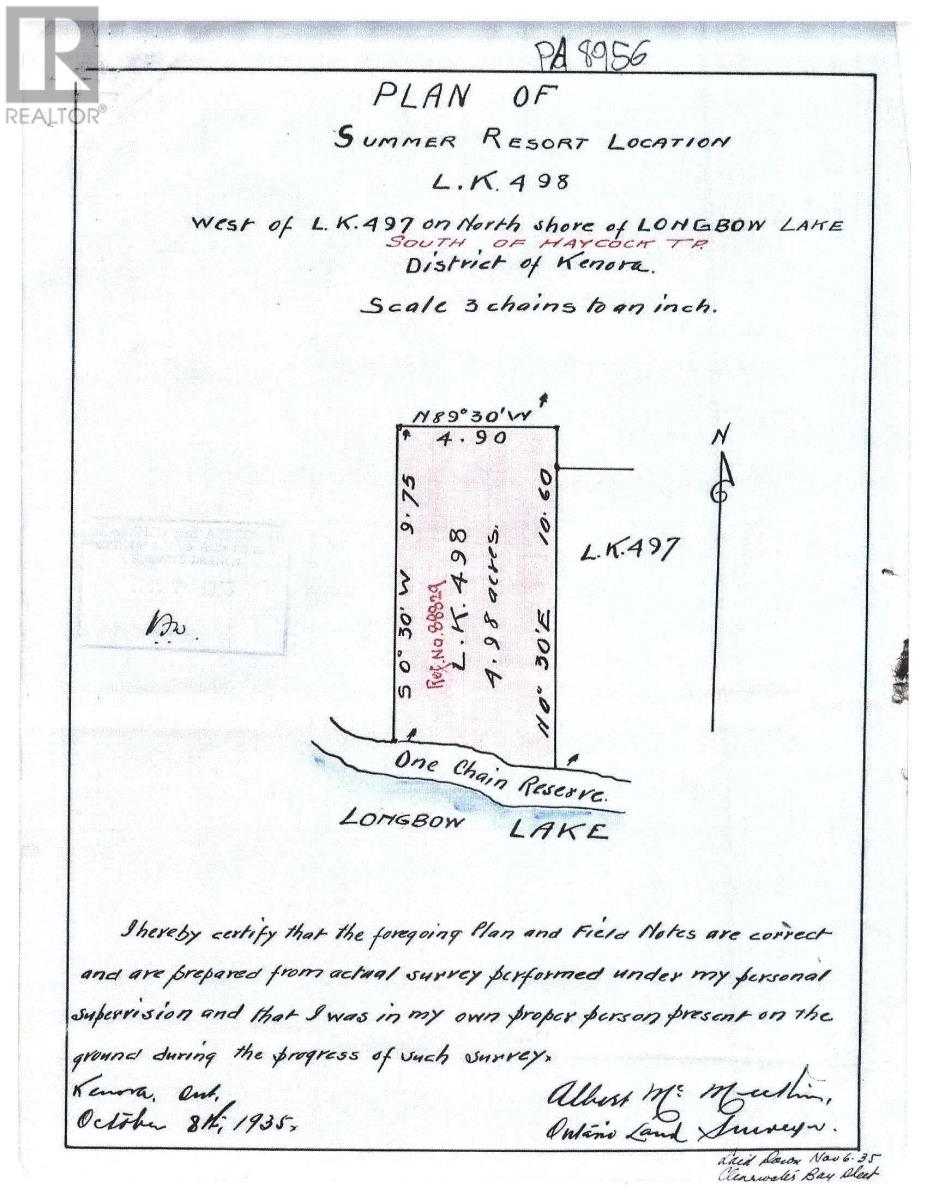 REALTOR®
PA 8956
PLAN OF
SUMMER RESORT LOCATION
L.K. 498
West of L.K.497 on North shore of LONGBOW LAKE
SOUTH OF HAYCOCK TP.
District of Kenora.
Scale 3 chains to an inch.
N89°30'W
4.90
N
S 0° 30' W 9.75
Ref. No. 88829
L.K. 498
4.98 acres.
N0° 30'E 10.60
L.K.497
One Chain Reserve.
LONGBOW LAKE
I hereby certify that the foregoing Plan and Field Notes are correct
and are prepared from actual survey performed under my personal
supervision and that I was in my own proper person present on the
ground during the progress of such survey.
Kenora, Ont.
October 8th, 1935.
Albert Mc
Ontario Land Surveyor.
Laid Down Nov 6-35
Clearwater Bay Sheet